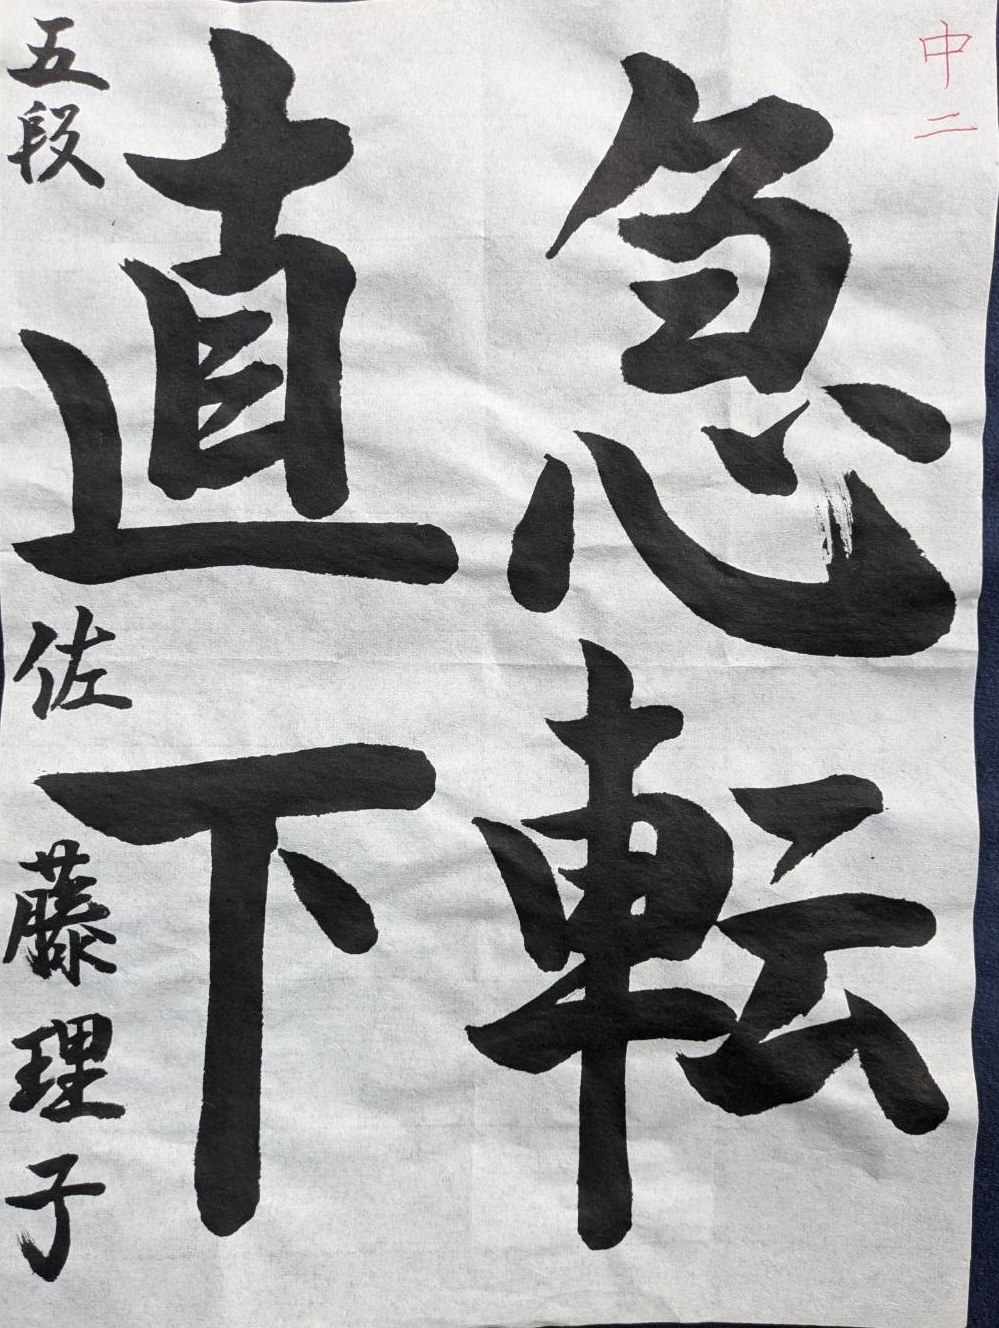 中二
急転
直下
五段 佐藤理子